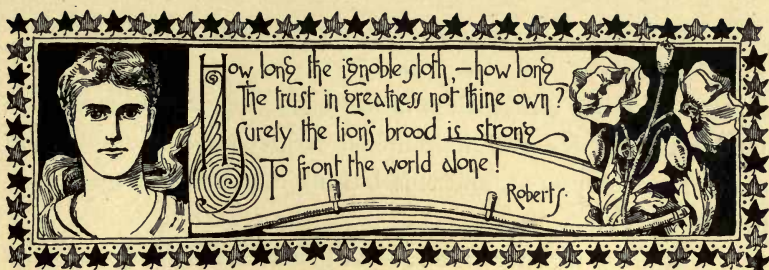 How long the ignoble sloth,—how long
The trust in greatness not thine own?
Surely the lion's brood is strong
To front the world alone!
Roberts.